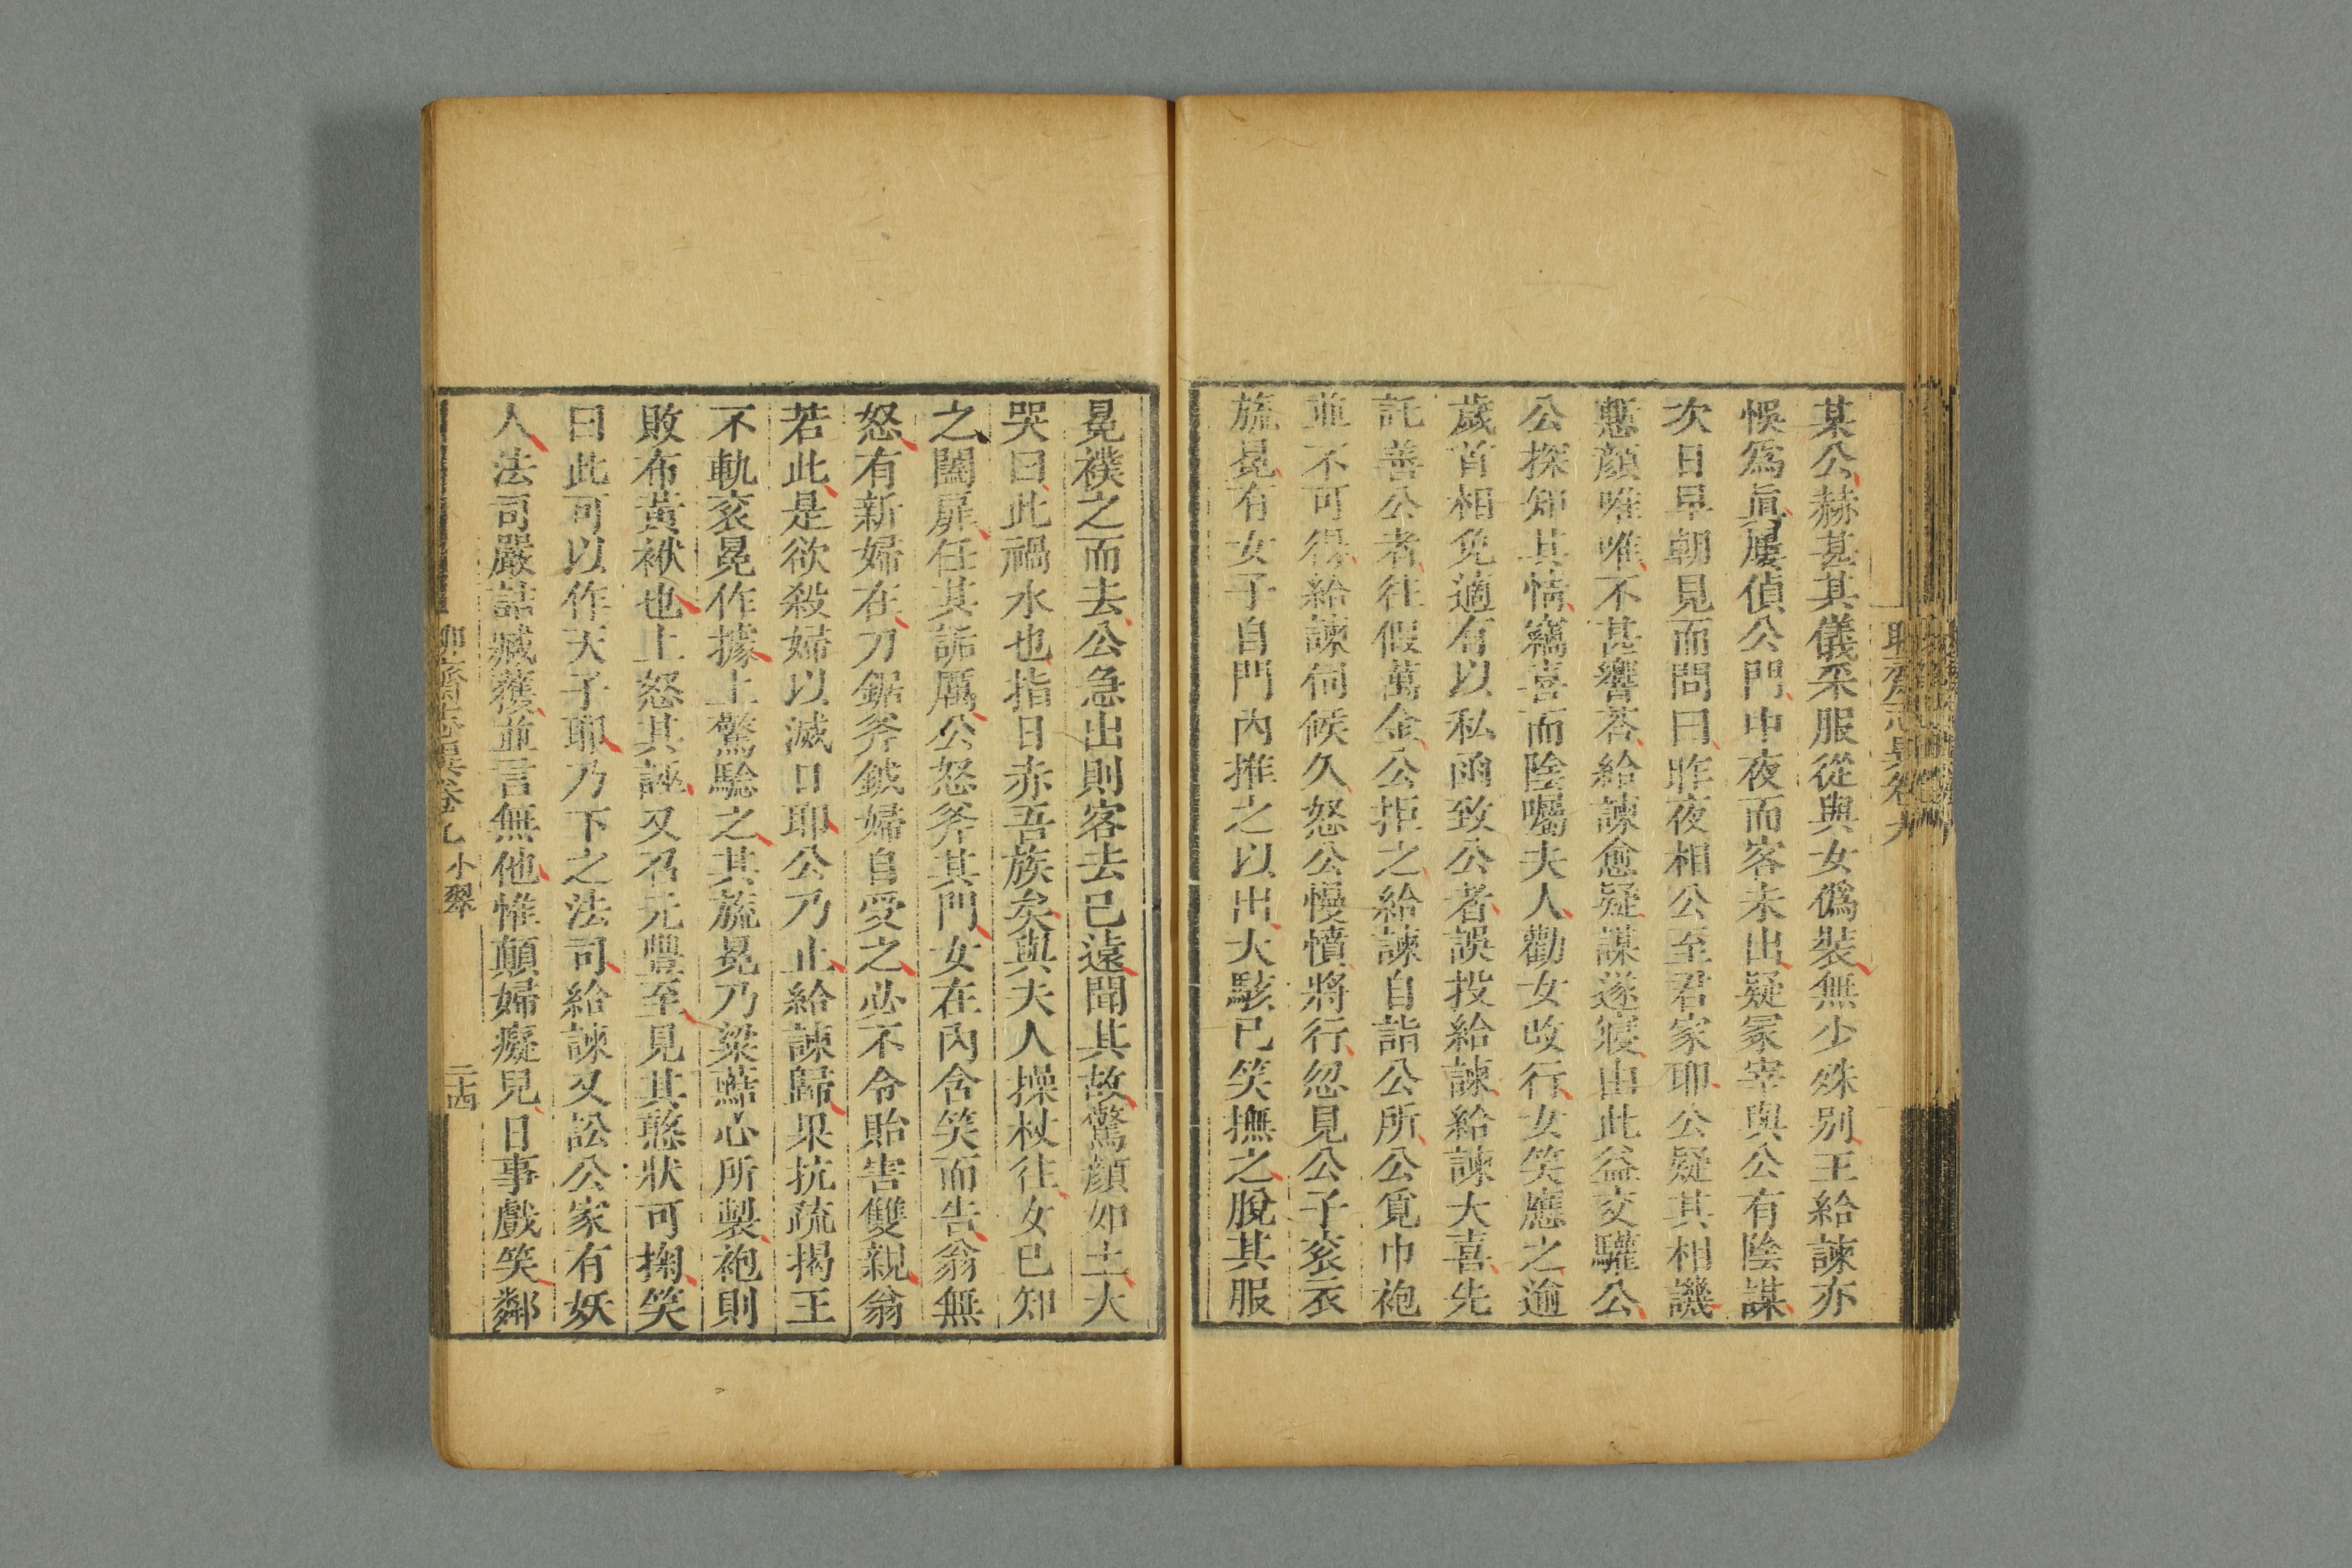 某公赫甚其儀采服從與女僞裝無少殊别王給諫亦
悞爲眞屢偵公門中夜而客未出疑冡宰與公有陰謀
次日早朝見而問曰昨夜相公至君家耶公疑其相譏
慙顔唯唯不甚響荅給諫愈疑謀遂寢由此益交驩公
公探知其情竊喜而陰囑夫人勸女改行女笑應之逾
歲首相免適有以私函致公者誤投給諫給諫大喜先
託善公者往假萬金公拒之給諫自詣公所公覓巾袍
並不可得給諫伺候久怒公慢憤將行忽見公子衮衣
旒冕有女子自門內推之以出大駭已笑撫之脫其服
聊齋志異卷九
冕襆之而去公急出則客去已遠聞其故驚顔如土大
哭曰此禍水也指日赤吾族矣與夫人操杖往女已知
之闔扉任其詬厲公怒斧其門女在內含笑而告翁無
怒有新婦在刀鋸斧鉞婦自受之必不令貽害雙親翁
若此是欲殺婦以滅口耶公乃止給諫歸果抗疏揭王
不軌衮冕作據上驚驗之其旒冕乃粱䕸心所製袍則
敗布黃袱也上怒其誣又召元豐至見其憨狀可掬笑
曰此可以作天子耶乃下之法司給諫又訟公家有妖
人法司嚴詰臧獲並言無他惟顛婦癡兒日事戲笑鄰
聊齋志異卷九 小翠 二十四